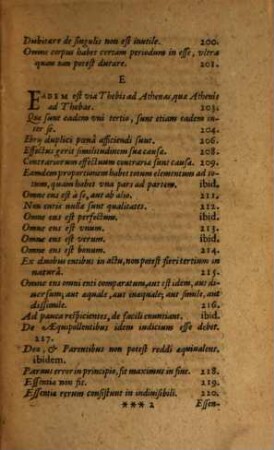 Dubitare de singulis non est inutile. 200.
Omne corpus habet certam periodum in esse, vltra
quam non potest durare. 201.
E
EADEM est via Thebis ad Athenas, quæ Athenis
ad Thebas. 203.
Quæ sunt eadem vni tertio, sunt etiam eadem in-
ter se. 204.
Ebrij duplici pœna afficiendi sunt. 206.
Effectus gerit similitudinem suæ causæ. 208.
Contrariorum effectuum contraria sunt causæ. 209.
Eamdem proportionem habet totum elementum ad to-
tum, quam habet vna pars ad partem. ibid.
Omne ens est à se, aut ab alio. 211.
Non entis nullæ sunt qualitates. 211.
Omne ens est perfectum. ibid.
Omne ens est vnum. 213.
Omne ens est verum. ibid.
Omne ens est bonum. 214.
Ex duobus entibus in actu, non potest fieri tertium in
naturâ. 215.
Omne ens omni enti comparatum, aut est idem, aut di-
uersum, aut æquale, aut inæquale; aut simile, aut
dissimile. 216.
Ad pauca respicientes, de facili enuntiant. ibid.
De Æquipollentibus idem iudicium esse debet.
217.
Deo, & Parentibus non potest reddi æquiualens.
ibidem.
Paruus error in principio, fit maximus in fine. 218.
Essentia non fit. 219.
Essentia rerum consistunt in indiuisibili. 220.
*** 2 Essen-